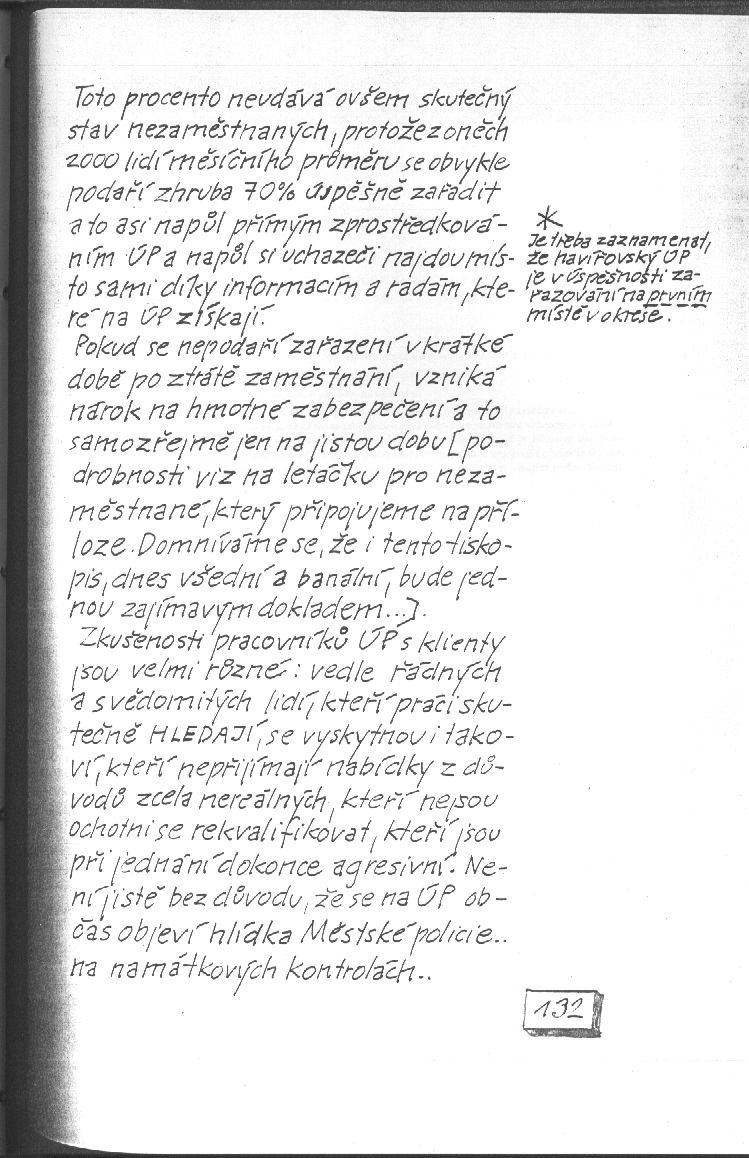 Toto procento neudává ovšem skutečný
stav nezaměstnaných, protože z oněch
2000 lidí měsíčního průměru se obvykle
podaří zhruba 70% úspěšně zařadit
a to asi napůl přímým zprostředková-
ním ÚP a napůl si uchazeči najdou mís-
to sami díky informacím a radám, kte-
ré na ÚP získají.
Pokud se nepodaří zařazení v krátké
době po ztrátě zaměstnání, vzniká
nárok na hmotné zabezpečení a to
samozřejmě jen na jistou dobu [po-
drobnosti viz na letáčku pro neza-
městnané, který připojujeme na pří-
loze. Domníváme se, že i tento tisko-
pis, dnes všední a banální, bude jed-
nou zajímavým dokladem...].
Zkušenosti pracovníků ÚP s klienty
jsou velmi různé: vedle řádných
a svědomitých lidí, kteří práci sku-
tečně HLEDAJÍ, se vyskytnou i tako-
ví, kteří nepřijímají nabídky z dů-
vodů zcela nereálných, kteří nejsou
ochotni se rekvalifikovat, kteří jsou
při jednání dokonce agresivní. Ne-
ní jistě bez důvodu, že se na ÚP ob-
čas objeví hlídka Městské policie..
na namátkových kontrolách..
*
Je třeba zaznamenat,
že havířovský ÚP
je v úspěšnosti za-
řazování na prvním
místě v okrese.
132